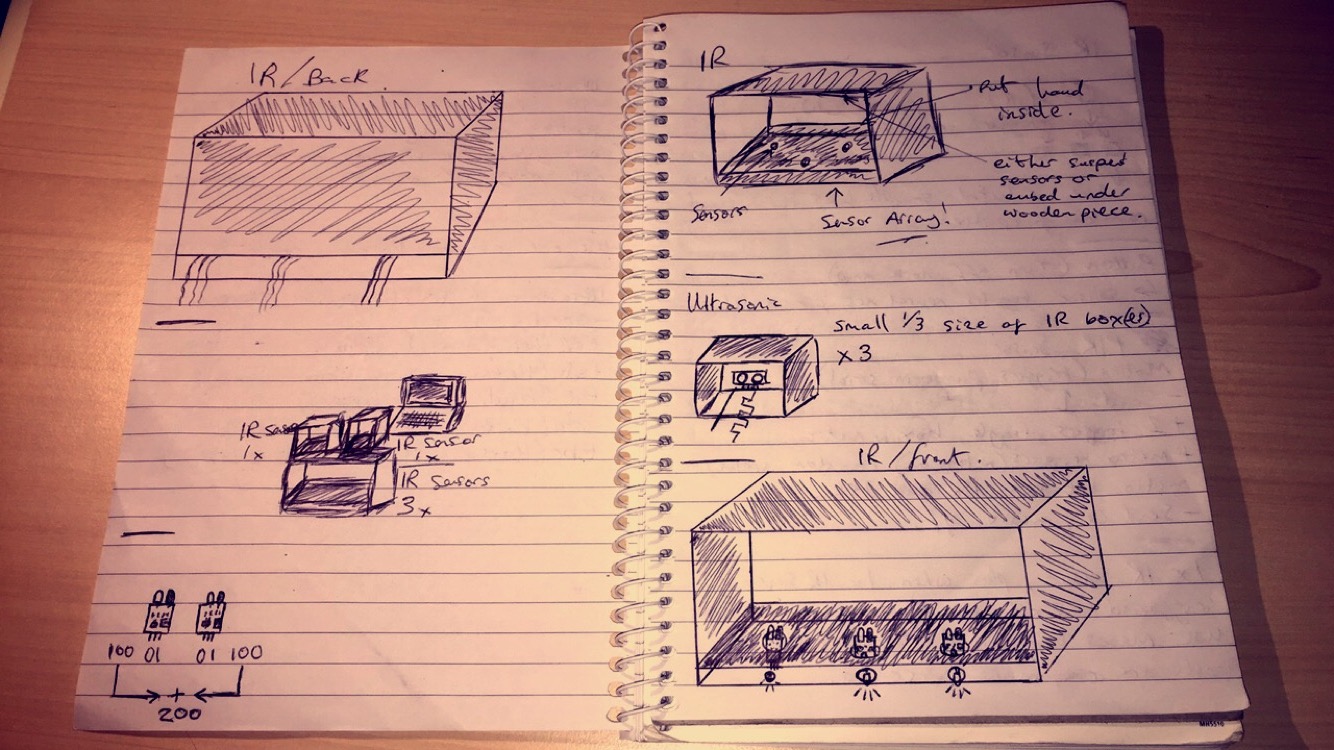 IR/Back.
IR sensor
1x
IR sensor
1x
IR sensors
3x
100 01 01 100
+
200
IR
Put hand
inside.
either susped
sensors or
embed under
wooden piece.
Sensors
Sensor Array!
Ultrasonic
small 1/3 size of IR box(es)
x 3
IR/front.